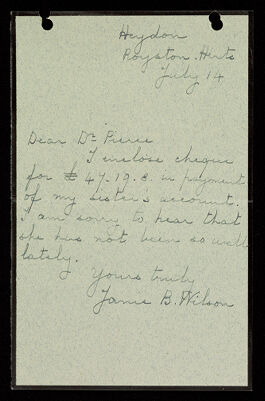 Heydon
Royston. Herts
July 14
Dear Dr Pierce
I enclose cheque
for £ 47.19.8. in payment
of my sister's account.
I am sorry to hear that
she has not been so well
lately.
Yours truly
Jamie B. Wilson